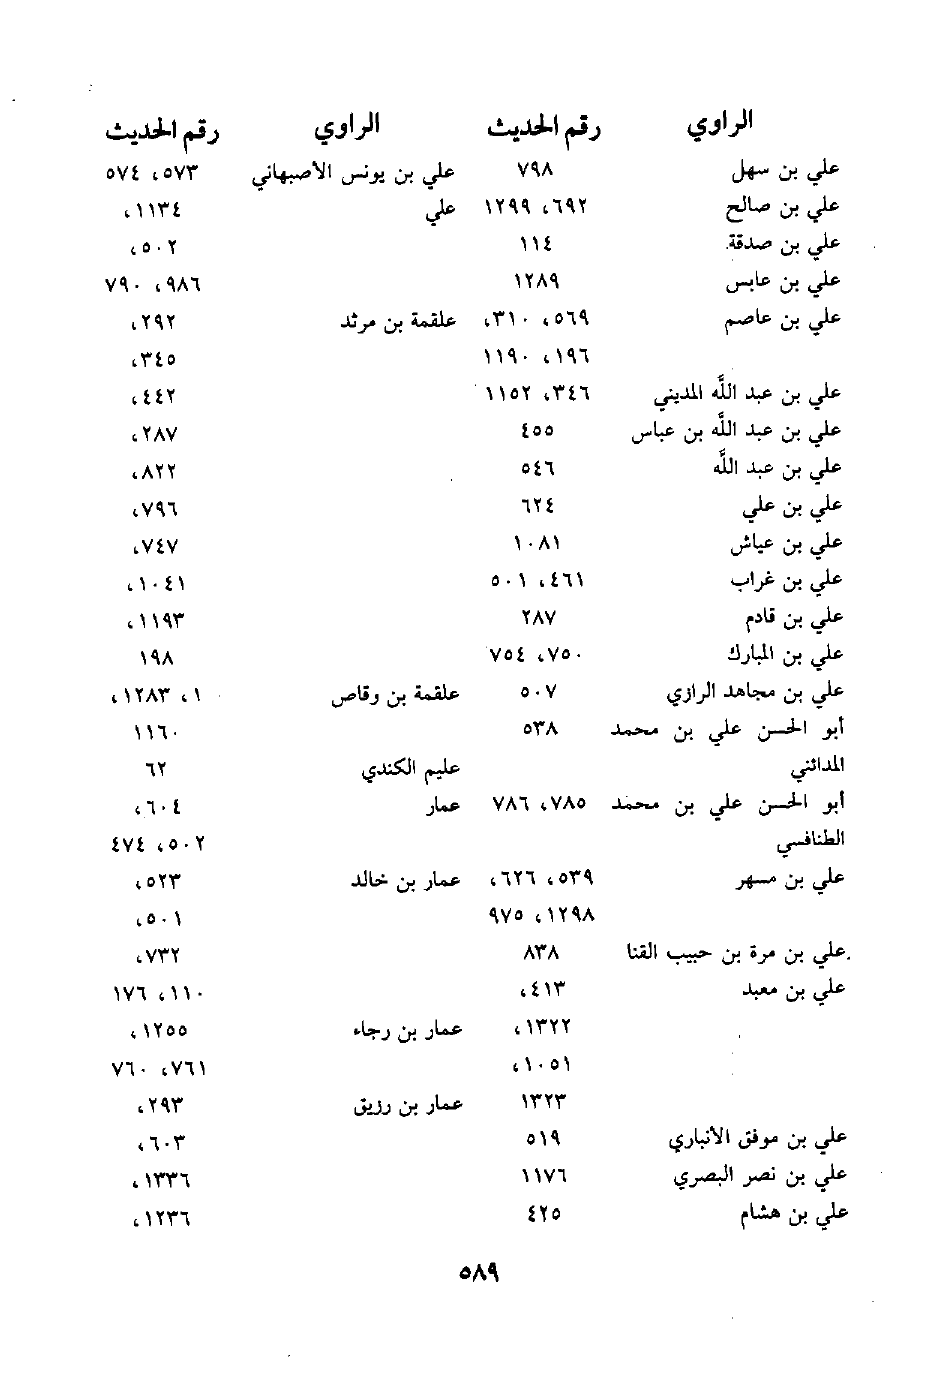 الراوي رقم الحديث
علي بن سهل ٧٩٨
علي بن صالح ٦٩٢، ١٢٩٩
علي بن صدقة ١١٤
علي بن عابس ١٢٨٩
علي بن عاصم ٥٦٩، ٣١٠،
١٩٦، ١١٩٠
علي بن عبد اللَّه المديني ٣٤٦، ١١٥٢
علي بن عبد اللَّه بن عباس ٤٥٥
علي بن عبد اللَّه ٥٤٦
علي بن علي ٦٢٤
علي بن عياش ١٠٨١
علي بن غراب ٤٦١، ٥٠١
علي بن قادم ٢٨٧
علي بن المبارك ٧٥٠، ٧٥٤
علي بن مجاهد الرازي ٥٠٧
أبو الحسن علي بن محمد ٥٣٨
المدائني
أبو الحسن علي بن محمد ٧٨٥، ٧٨٦
الطنافسي
علي بن مسهر ٥٣٩، ٦٢٦،
١٢٩٨، ٩٧٥
علي بن مرة بن حبيب القنا ٨٣٨
علي بن معبد ٤١٣،
١٣٢٢،
١٠٥١،
١٣٢٣
علي بن موفق الأنباري ٥١٩
علي بن نصر البصري ١١٧٦
علي بن هشام ٤٢٥
الراوي رقم الحديث
علي بن يونس الأصبهاني ٥٧٣، ٥٧٤
علي ١١٣٤،
٥٠٢،
٩٨٦، ٧٩٠
علقمة بن مرثد ٢٩٢،
٣٤٥،
٤٤٢،
٢٨٧،
٨٢٢،
٧٩٦،
٧٤٧،
١٠٤١،
١١٩٣،
١٩٨
علقمة بن وقاص ١، ١٢٨٣،
١١٦٠
عليم الكندي ٦٢
عمار ٦٠٤،
٥٠٢، ٤٧٤
عمار بن خالد ٥٢٣،
٥٠١،
٧٣٢،
١١٠، ١٧٦
عمار بن رجاء ١٢٥٥،
٧٦١، ٧٦٠
عمار بن رزيق ٢٩٣،
٦٠٣،
١٣٣٦،
١٢٣٦،
٥٨٩